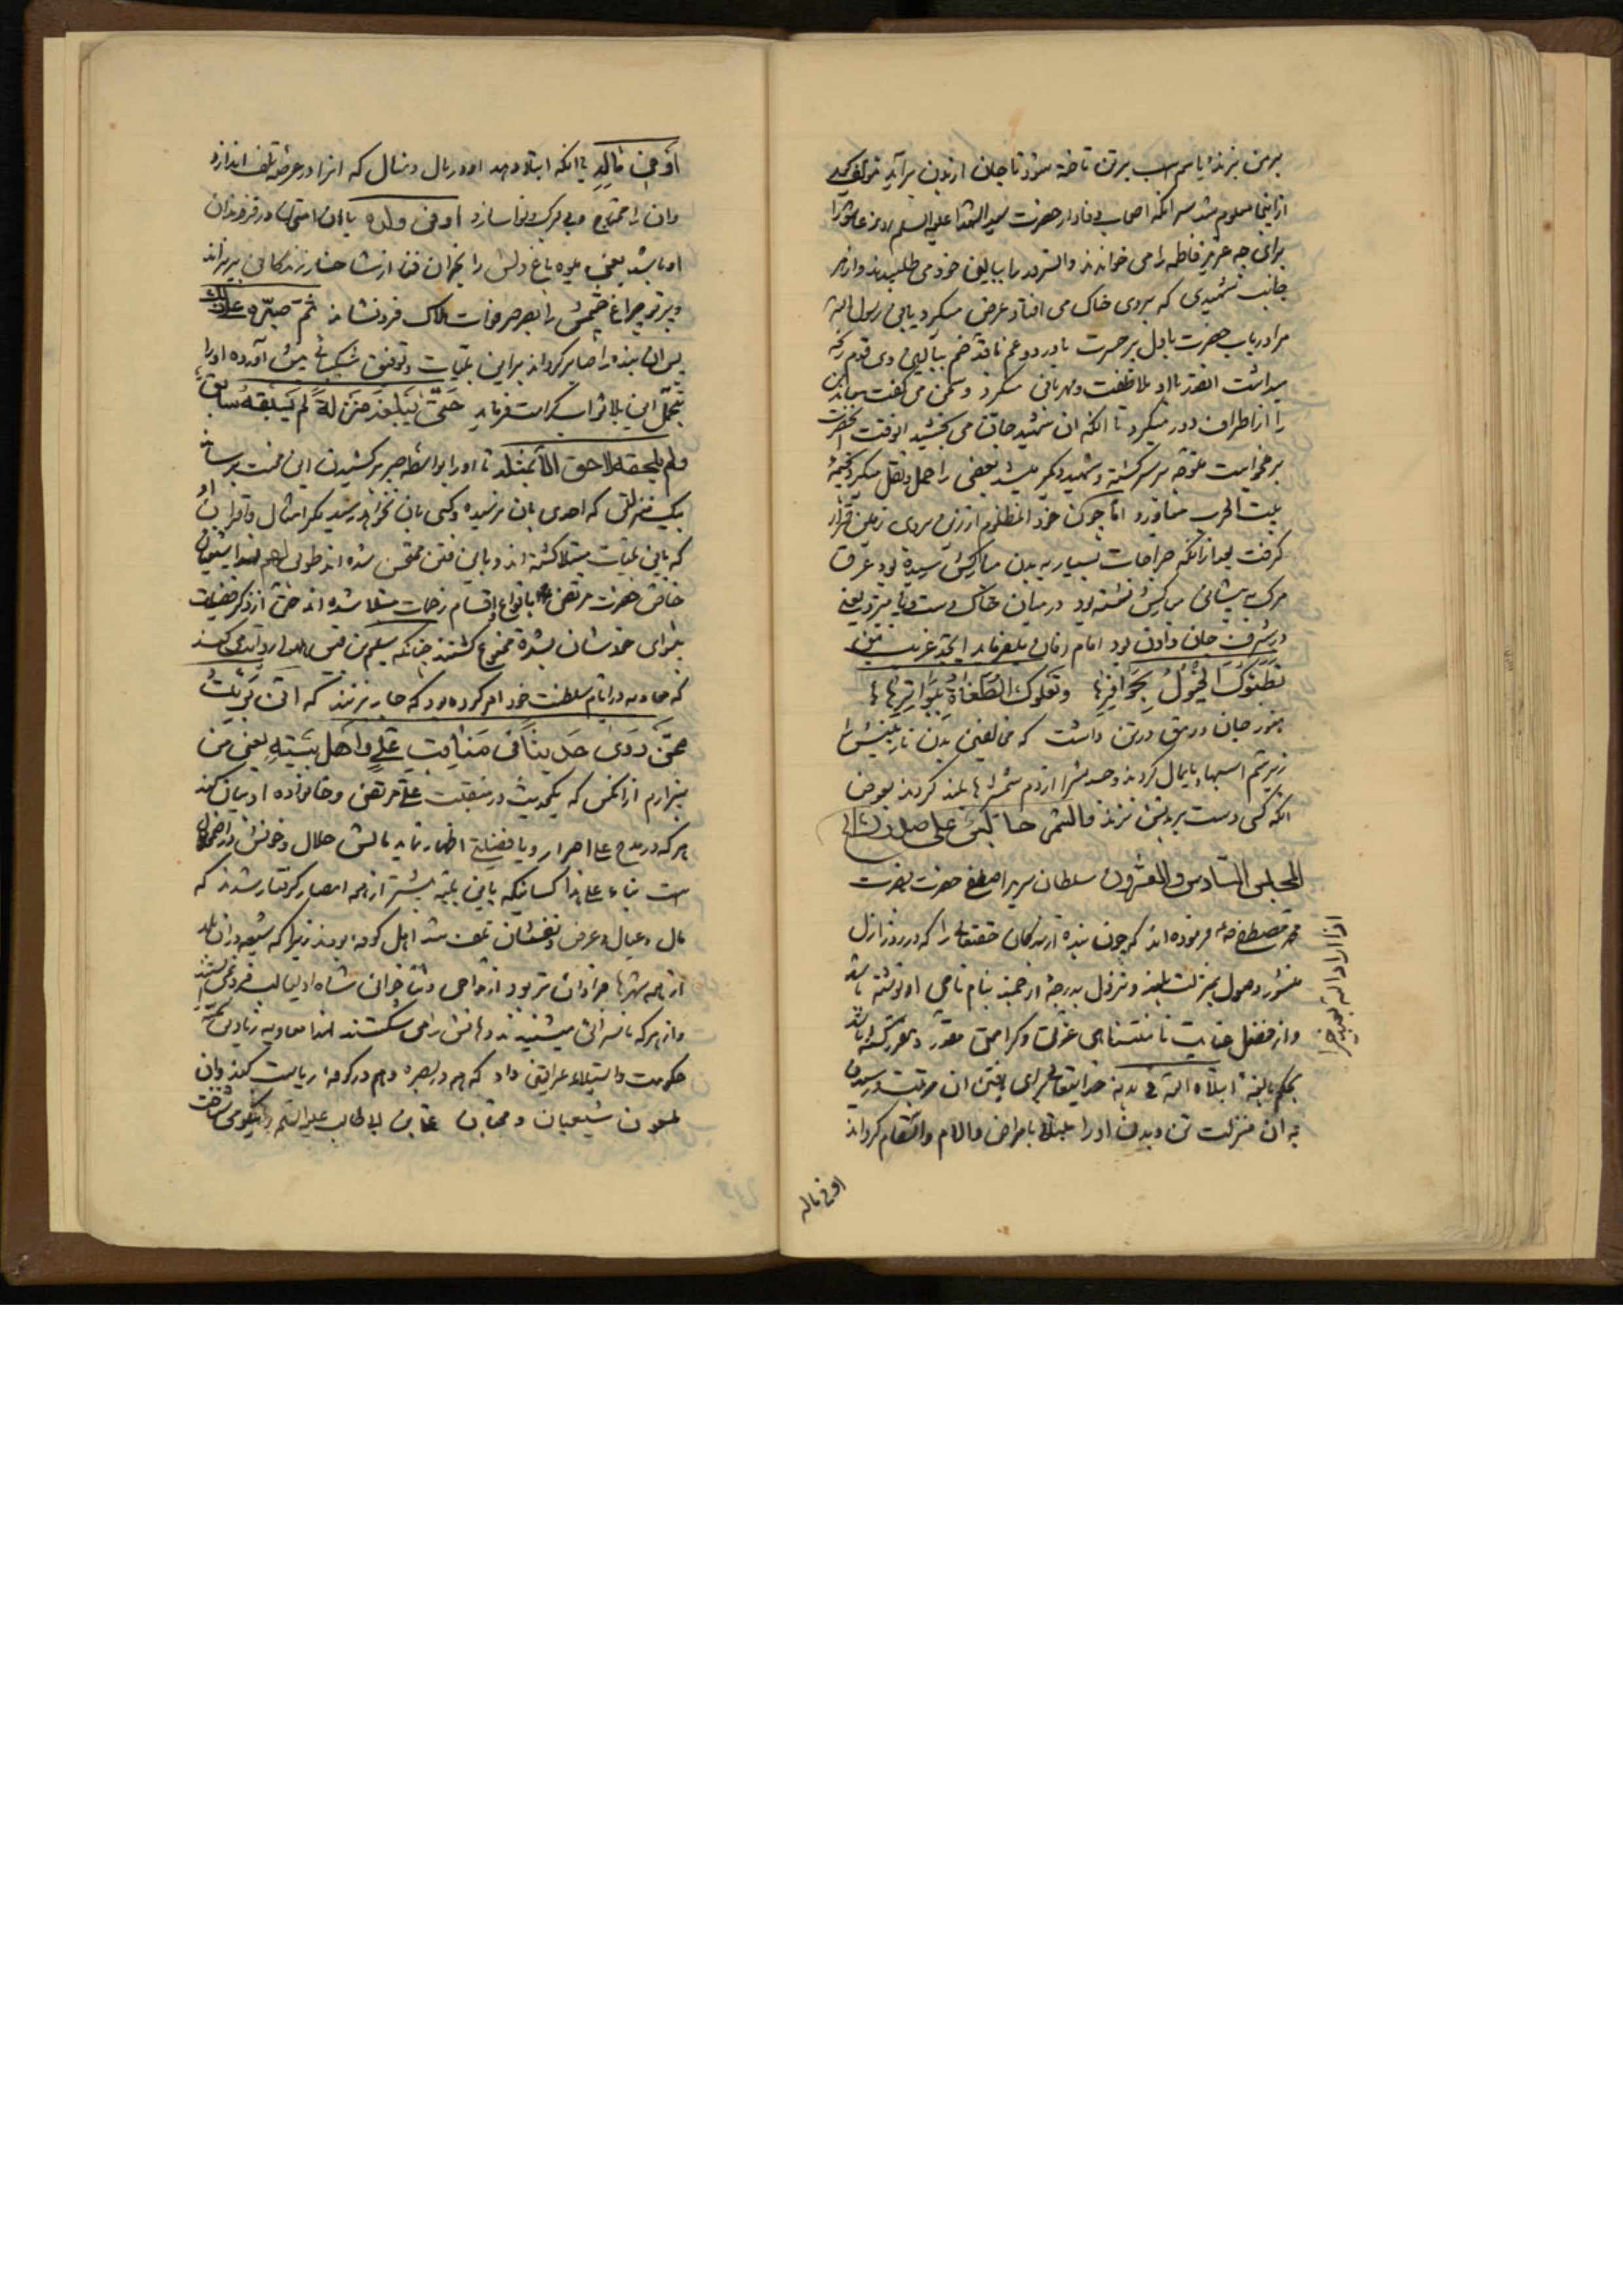 برمن بزنند یا سم اسب برتن تاخته شود تا جان از بدن برآید
ازاینجا معلوم شد سر آنکه اصحاب وفادار حضرت سید الشهدا علیه السلم روز عاشورا
برای چه عزیز فاطمه را می خواندند و آنسرور را ببالین خود می طلبیدند و از هر
جانب شهیدی که بروی خاک می افتاد عرض میکرد یابن رسول الله
مرا دریاب حضرت با دل پر حسرت با درد و غم ببالین وی قدم رنجه
میداشت آنقدر با او ملاطفت و مهربانی میکرد و سخن می گفت
را از اطراف دور میکرد تا آنکه آن شهید جان می بخشید آنوقت آنحضرت
بر میخواست متوجه سر کشته و شهید دیگر میشد بعضی را حمل و نقل میکرد بخیمه
بیت الحرب میآورد اما چون خود آنمظلوم از زین بروی زمین قرار
گرفت بعد ازآنکه جراحات بسیار به بدن مبارکش رسیده بود عرق
مرگ به پیشانی مبارکش نشسته بود در میان خاک دست و پا میزد یعنی
در شرف جان دادن بود امام زمان میفرماید ایجد غریب من
تطئوک الخیول بحوافرها وتعلوک الطغاة ببواترها
هنوز جان و رمق در تن داشت که مخالفین بدن نازنینش را
زیر سم اسبها پایمال کردند و جسدش را از دم شمشیرها بلند کردند بعوض
آنکه کسی دست بر بدنش نزند فالشمر جالس علی صدرک
المجلس السادس والعشرون سلطان سریر اصطفی حضرت
محمد مصطفی ص فرموده اند که چون بنده از بندگان حقتعالی را که در روز ازل
منشور وصول بمنزلت بلند و نزول بدرجه ارجمند بنام نامی او نوشته باشد
واز فضل عنایت نامتناهی عزت و کرامتی مقدر و مقرر گشته باشد
بحکم بالغه ابتلاه الله فی بدنه خدایتعالی برای یافتن آن مرتبت و رسیدن
به آن منزلت تن و بدن او را مبتلا بامراض و آلام و اسقام گرداند
اذا اراد الله بعبد خیرا
او فی ماله
او فی ماله یا آنکه ابتلا دهد او را در مال و منال که آنرا در عرضه تلف اندازد
و آن را محتاج و بی برگ و نوا سازد او فی ولده یا آن امتحان در فرزندان
او باشد یعنی میوه باغ دلش را بخزان فنا از شاخسار زندگانی بریزاند
و پرتو چراغ چشمش را بصرصر فوات هلاک فرونشاند ثم صبره علی ذلک
پس آن بنده را صابر گرداند براین بلیات و توفیق شکیبائی پیش آورده او را
بتحمل این بلا ثواب کرامت فرماید حتی یبلغه منزلة لم یسبقه سابق
ولم یلحقه لاحق الا بمثله تا او را بواسطه صبر بر کشیدن این محنت برساند
بیک منزلتی که احدی بآن نرسیده و کسی بآن نخواهد رسید مگر امثال و اقران او
که باین بلیات مبتلا گشته اند و باین فتن ممتحن شده اند طوبی لهم لهذا شیعیان
خاص حضرت مرتضی ع بانواع و اقسام زحمات مبتلا شده اند حتی از ذکر فضیلت
پیشوای خودشان بشدة ممنوع گشتند چنانکه سلیم بن قیس هلالی روایت می کند
که معاویه در ایام سلطنت خود امر کرده بود که جار بزنند که انی بریت
ممن روی حدیثا فی مناقب علی واهل بیته یعنی من
بیزارم از آنکس که یکحدیث در منقبت علی مرتضی و خانواده او بیان کند
هر که در مدح علی اصرار و یا فضیلتی اظهار نماید مالش حلال و خونش
است بناء علی هذا کسانیکه باین بلیه بیشتر از همه امصار گرفتار شدند که
مال و عیال و عرض و نفسشان تلف شد اهل کوفه بودند زیرا که شیعه در آن بلد
از همه شهرها فراوان تر بود از مداحی و ثنا خوانی شاه اولیا لب فرو نمی بستند
و از هر که ناسزائی میشنیدند دهانش را می شکستند لهذا معاویه زیاد بن سمیه
حکومت و استیلاء عراقین داد که هم در بصره و هم در کوفه ریاست کند و آن
ملعون شیعیان و محبان علی بن ابی طالب علیه السلم را نیکو می شناخت